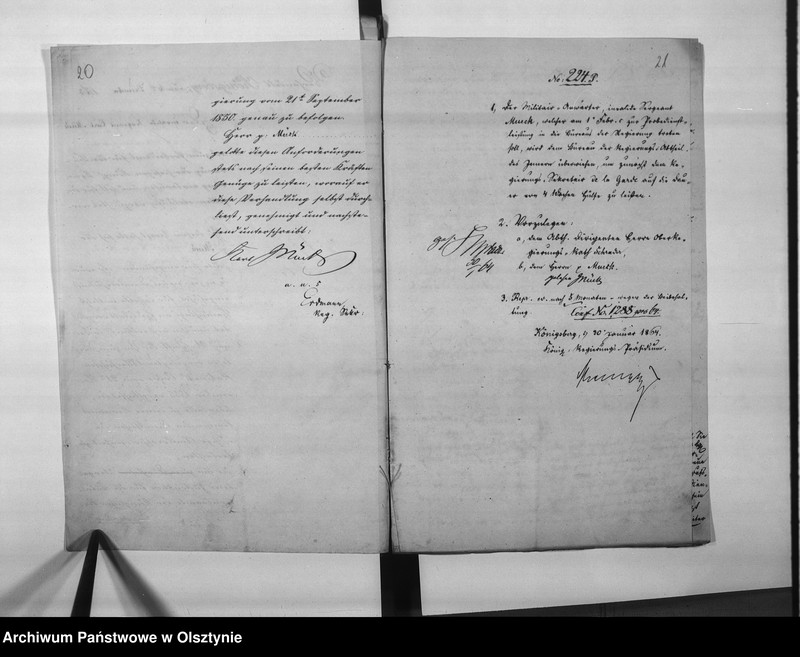 20
gierung vom 21t September
1850. genau zu befolgen.
Herr p. Murk
gelobte diesen Anforderungen
stets nach seinen besten Kräften
Genüge zu leisten, worauf er
diese Verhandlung selbst durch
liest, genehmigt und nachste-
hend unterschreibt:
Karl Murk
a. u. s
Erdmann
Reg. Sekr.
21
No. 224 P.
1, Der Militair-Anwärter, invalide Sergeant
Murck, welcher am 1t Febr. c zur Probedienst-
leistung in die Bureaus der Regierung treten
soll, wird dem Bureau der Regierungs-Abtheil.
des Innern überwiesen, um zunächst dem Re-
gierungs-Sekretair de la Garde auf die Dau-
er von 4 Wochen Hülfe zu leisten.
2. Vorzulegen:
a, dem Abth. Dirigenten Herrn Oberre-
gierungs-Rath
b, dem Herrn p Murck.
gelesen Murck
3. Repr. nach 5 Monaten wegen der Beibehal-
tung.
Königsberg, d 30 Januar 1864.
Königl. Regierungs-Präsidium.
Archiwum Państwowe w Olsztynie